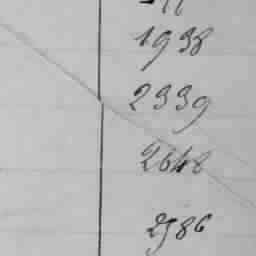 1938
2339
2648
2986